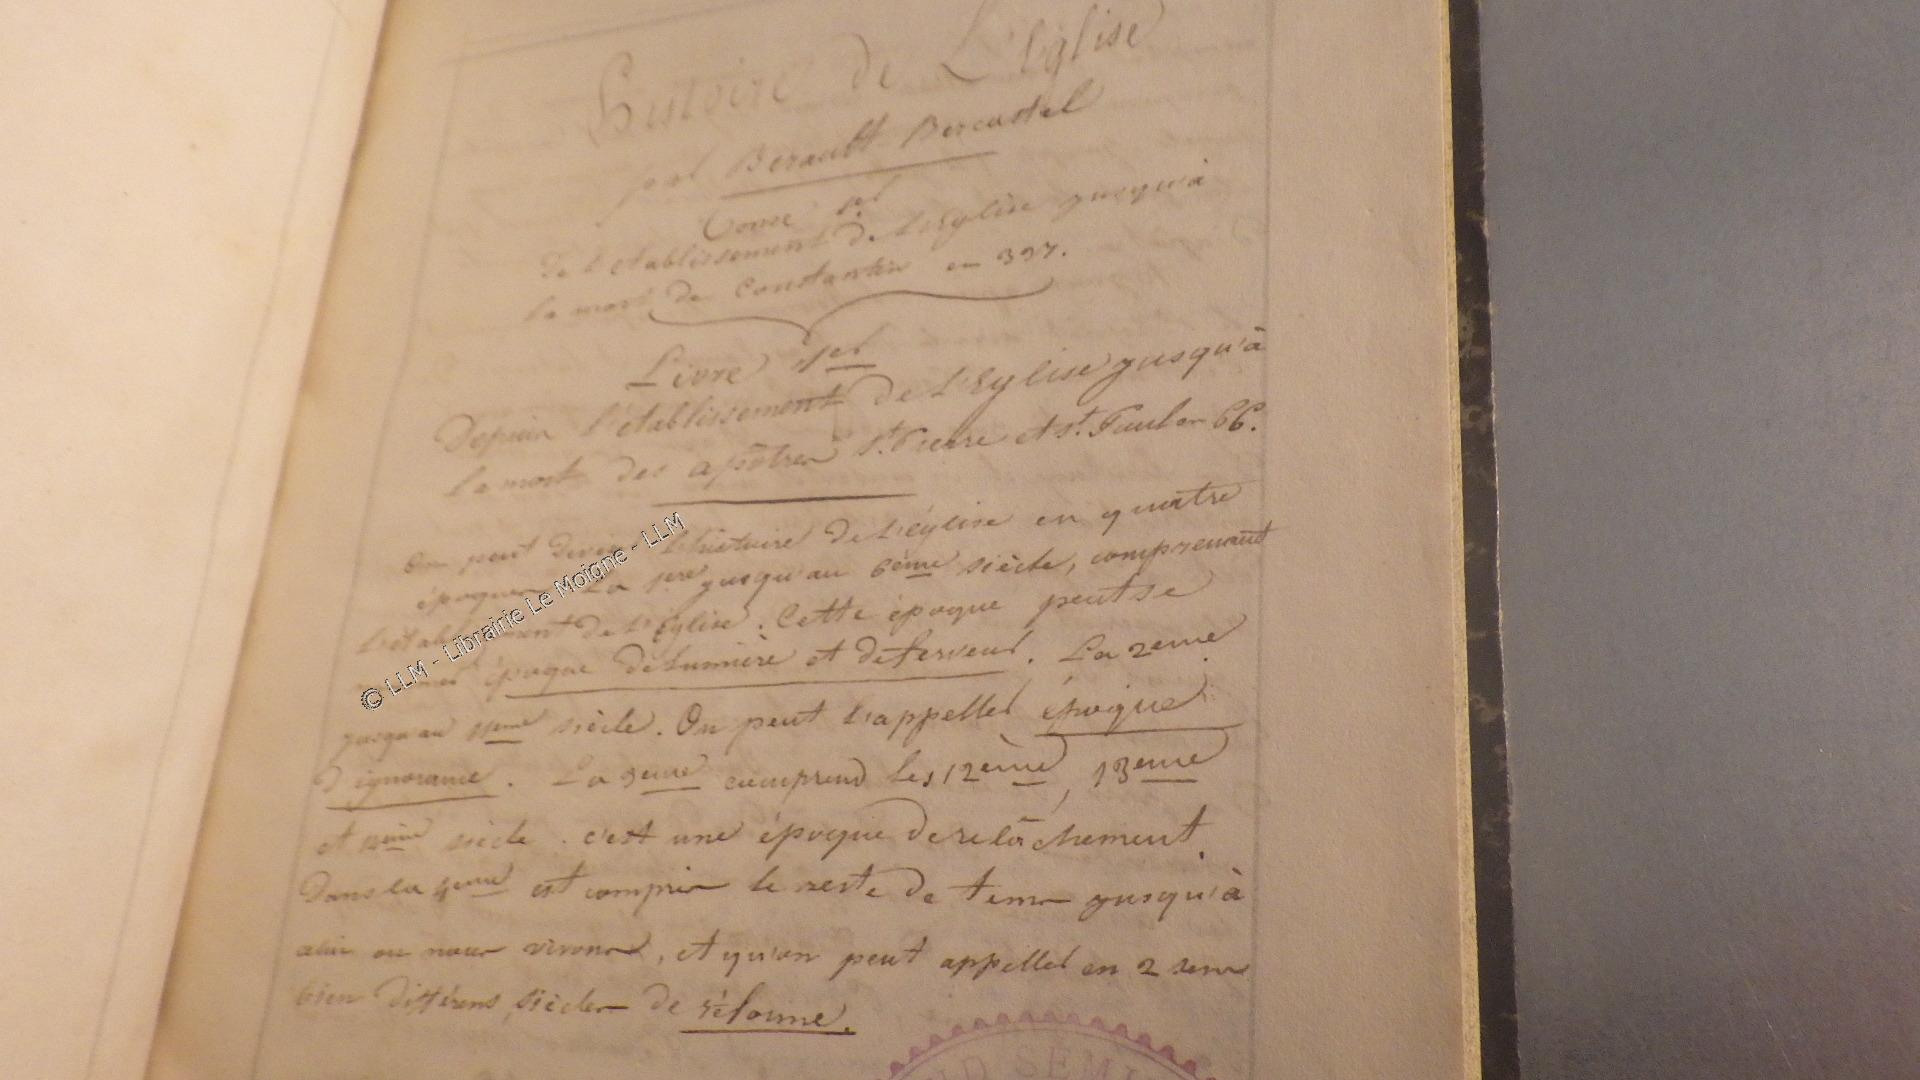 histoire de L'Eglise
par Berault-Bercastel
Tome 1er
De l'etablissement de L'Eglise jusqu'à
la mort de Constantin en 337.
Livre 1er
Depuis l'établissement de L'Eglise jusqu'à
la mort des apôtres St. Pierre et St. Paul en 66.
On peut l'histoire de l'église en quatre
époques. La 1ere jusqu'au 6ème siècle, comprenant
de l'Eglise. Cette époque peut se
époque de lumière et de ferveur. La 2eme
jusqu'au siècle. On peut l'appeller époque
d'ignorance. La 3eme comprend les 12ème, 13eme
et siècle. c'est une époque de relâchement.
Dans la 4eme est compris le reste de tems jusqu'à
ou nous vivons, et qu'on peut appeller en 2 sens
bien différens siècles de réforme.
© LLM - Librairie Le Moigne - LLM
ND SEMI